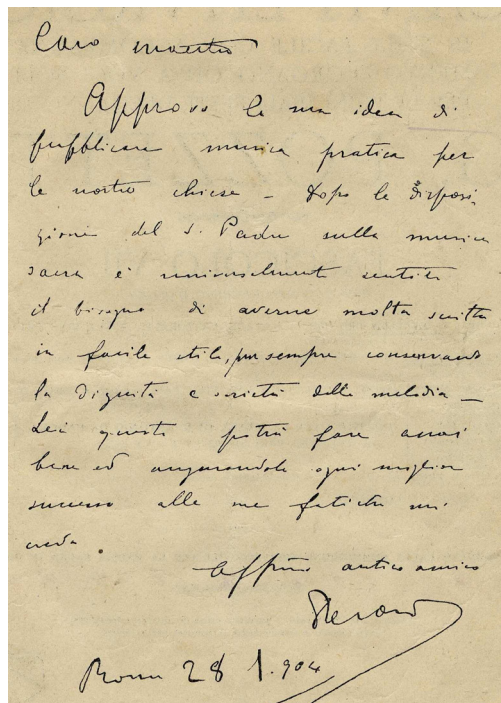 Caro maestro
Approvo la sua idea di
pubblicare musica pratica per
le nostre chiese – Dopo le disposi-
zioni del S. Padre sulla musica
sacra è universalmente sentito
il bisogno di averne molta scritta
in facile stile, pur sempre conservando
la dignità e serietà della melodia –
Lei questo potrà fare assai
bene ed augurandole ogni miglior
successo alle sue fatiche mi
creda.
Affmo antico amico
Roma 28 1.904